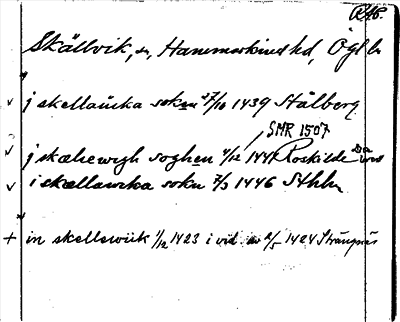 Skällvik, sn, Hammarkinds hd, Ögl ln
j skellauika sokn 27/10 1439 Stålberg
SMR 1507
j skælewigh soghen 4/12 1441 Roskilde
i skællawika sokn 7/3 1446 Sthlm
in skellewiik 1/12 1423 i vid. av 2/5 1424 Strängnäs